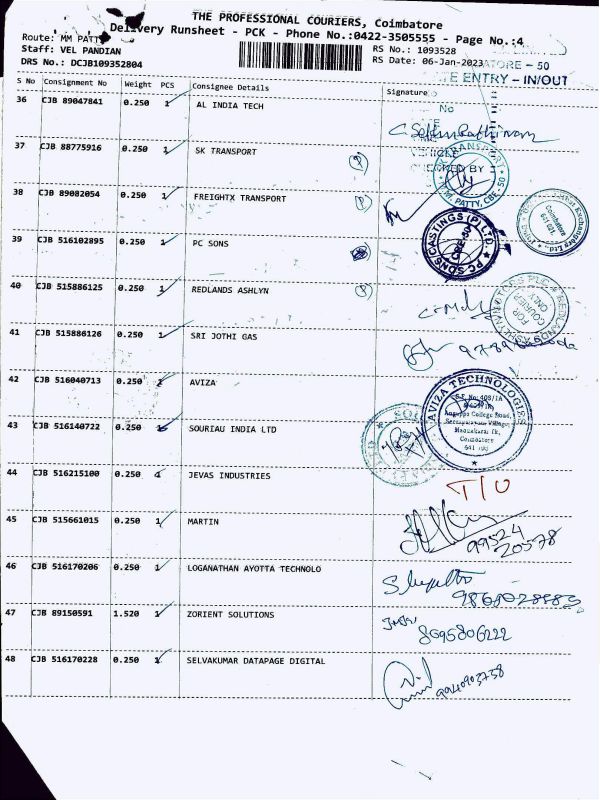 THE PROFESSIONAL COURIERS, Coimbatore
Delivery Runsheet - PCK - Phone No.:0422-3505555 - Page No.:4
Route: MM PATTY
Staff: VEL PANDIAN
DRS No.: DCJB109352804
RS No.: 1093528
RS Date: 06-Jan-2023
ATORE - 50
TE ENTRY - IN/OUT
S No Consignment No Weight PCS Consignee Details Signature
No
36 CJB 89047841 0.250 1 AL INDIA TECH
37 CJB 88775916 0.250 1 SK TRANSPORT
VEHICLE
CHECKED BY
TRANSPORT
M. PATTY, CBE - 50
38 CJB 89082054 0.250 1 FREIGHTX TRANSPORT
Coimbatore
641 021.
39 CJB 516102895 0.250 1 PC SONS
PC SONS CASTINGS (P) LTD
40 CJB 515886125 0.250 1 REDLANDS ASHLYN
FOR
COURIER
ONLY
41 CJB 515886126 0.250 1 SRI JOTHI GAS
42 CJB 516040713 0.250 AVIZA
AVIZA TECHNOLOGIES
S.F. No: 408/1A
College Road,
Coimbatore
43 CJB 516140722 0.250 SOURIAU INDIA LTD
44 CJB 516215100 0.250 JEVAS INDUSTRIES
T/O
45 CJB 515661015 0.250 1 MARTIN
99524
20578
46 CJB 516170206 0.250 1 LOGANATHAN AYOTTA TECHNOLO
47 CJB 89150591 1.520 1 ZORIENT SOLUTIONS
8695806222
48 CJB 516170228 0.250 SELVAKUMAR DATAPAGE DIGITAL
9940903738